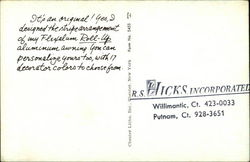 It's an original! Yes, I
designed the stripe arrangement
of my Flexalum Roll-Up
aluminum awning. You can
personalize yours too, with 17
decorator colors to choose from.
Form No. 5455
New York
R.S. HICKS INCORPORATED
Willimantic, Ct. 423-0033
Putnam, Ct. 928-3651